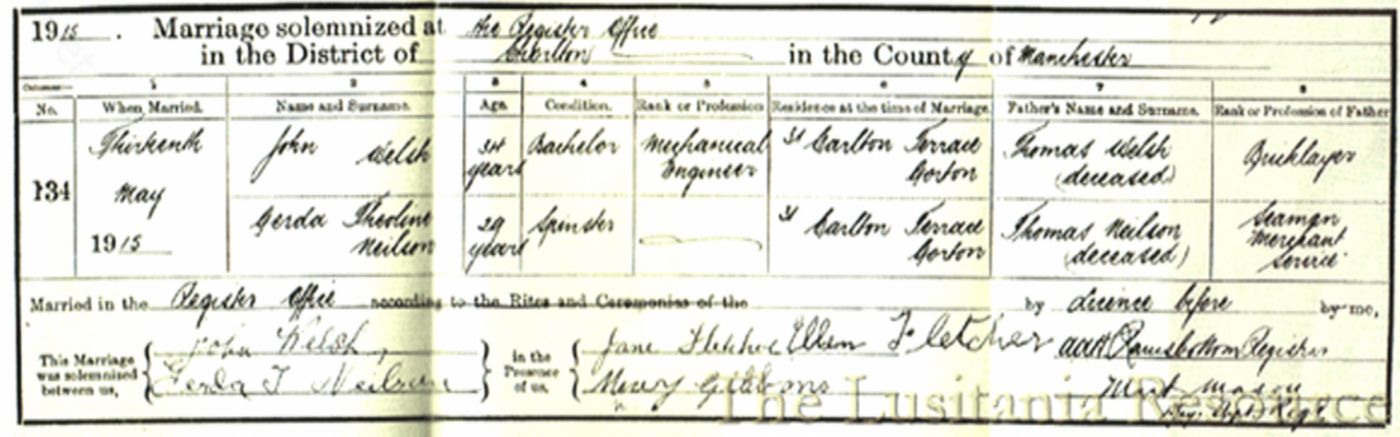 1915. Marriage solemnized at the Register Office
in the District of Chorlton in the County of Manchester
Columns:— 1 2 3 4 5 6 7 8
No. When Married. Name and Surname. Age. Condition. Rank or Profession Residence at the time of Marriage. Father's Name and Surname. Rank or Profession of Father
134 Thirteenth May 1915
John Welsh 34 years Bachelor Mechanical Engineer 31 Carlton Terrace Gorton Thomas Welsh (deceased) Bricklayer
Gerda Theoline Neilson 29 years Spinster 31 Carlton Terrace Gorton Thomas Neilson (deceased) Seaman Merchant Service
Married in the Register Office according to the Rites and Ceremonies of the by Licence before by me,
This Marriage was solemnized between us, John Welsh, Gerda T Neilson
in the Presence of us, Jane Fletcher Ellen Fletcher Mercy Gibbons
Ramsbottom Registrar
Mason
Supt. Regr.
The Lusitania Resource